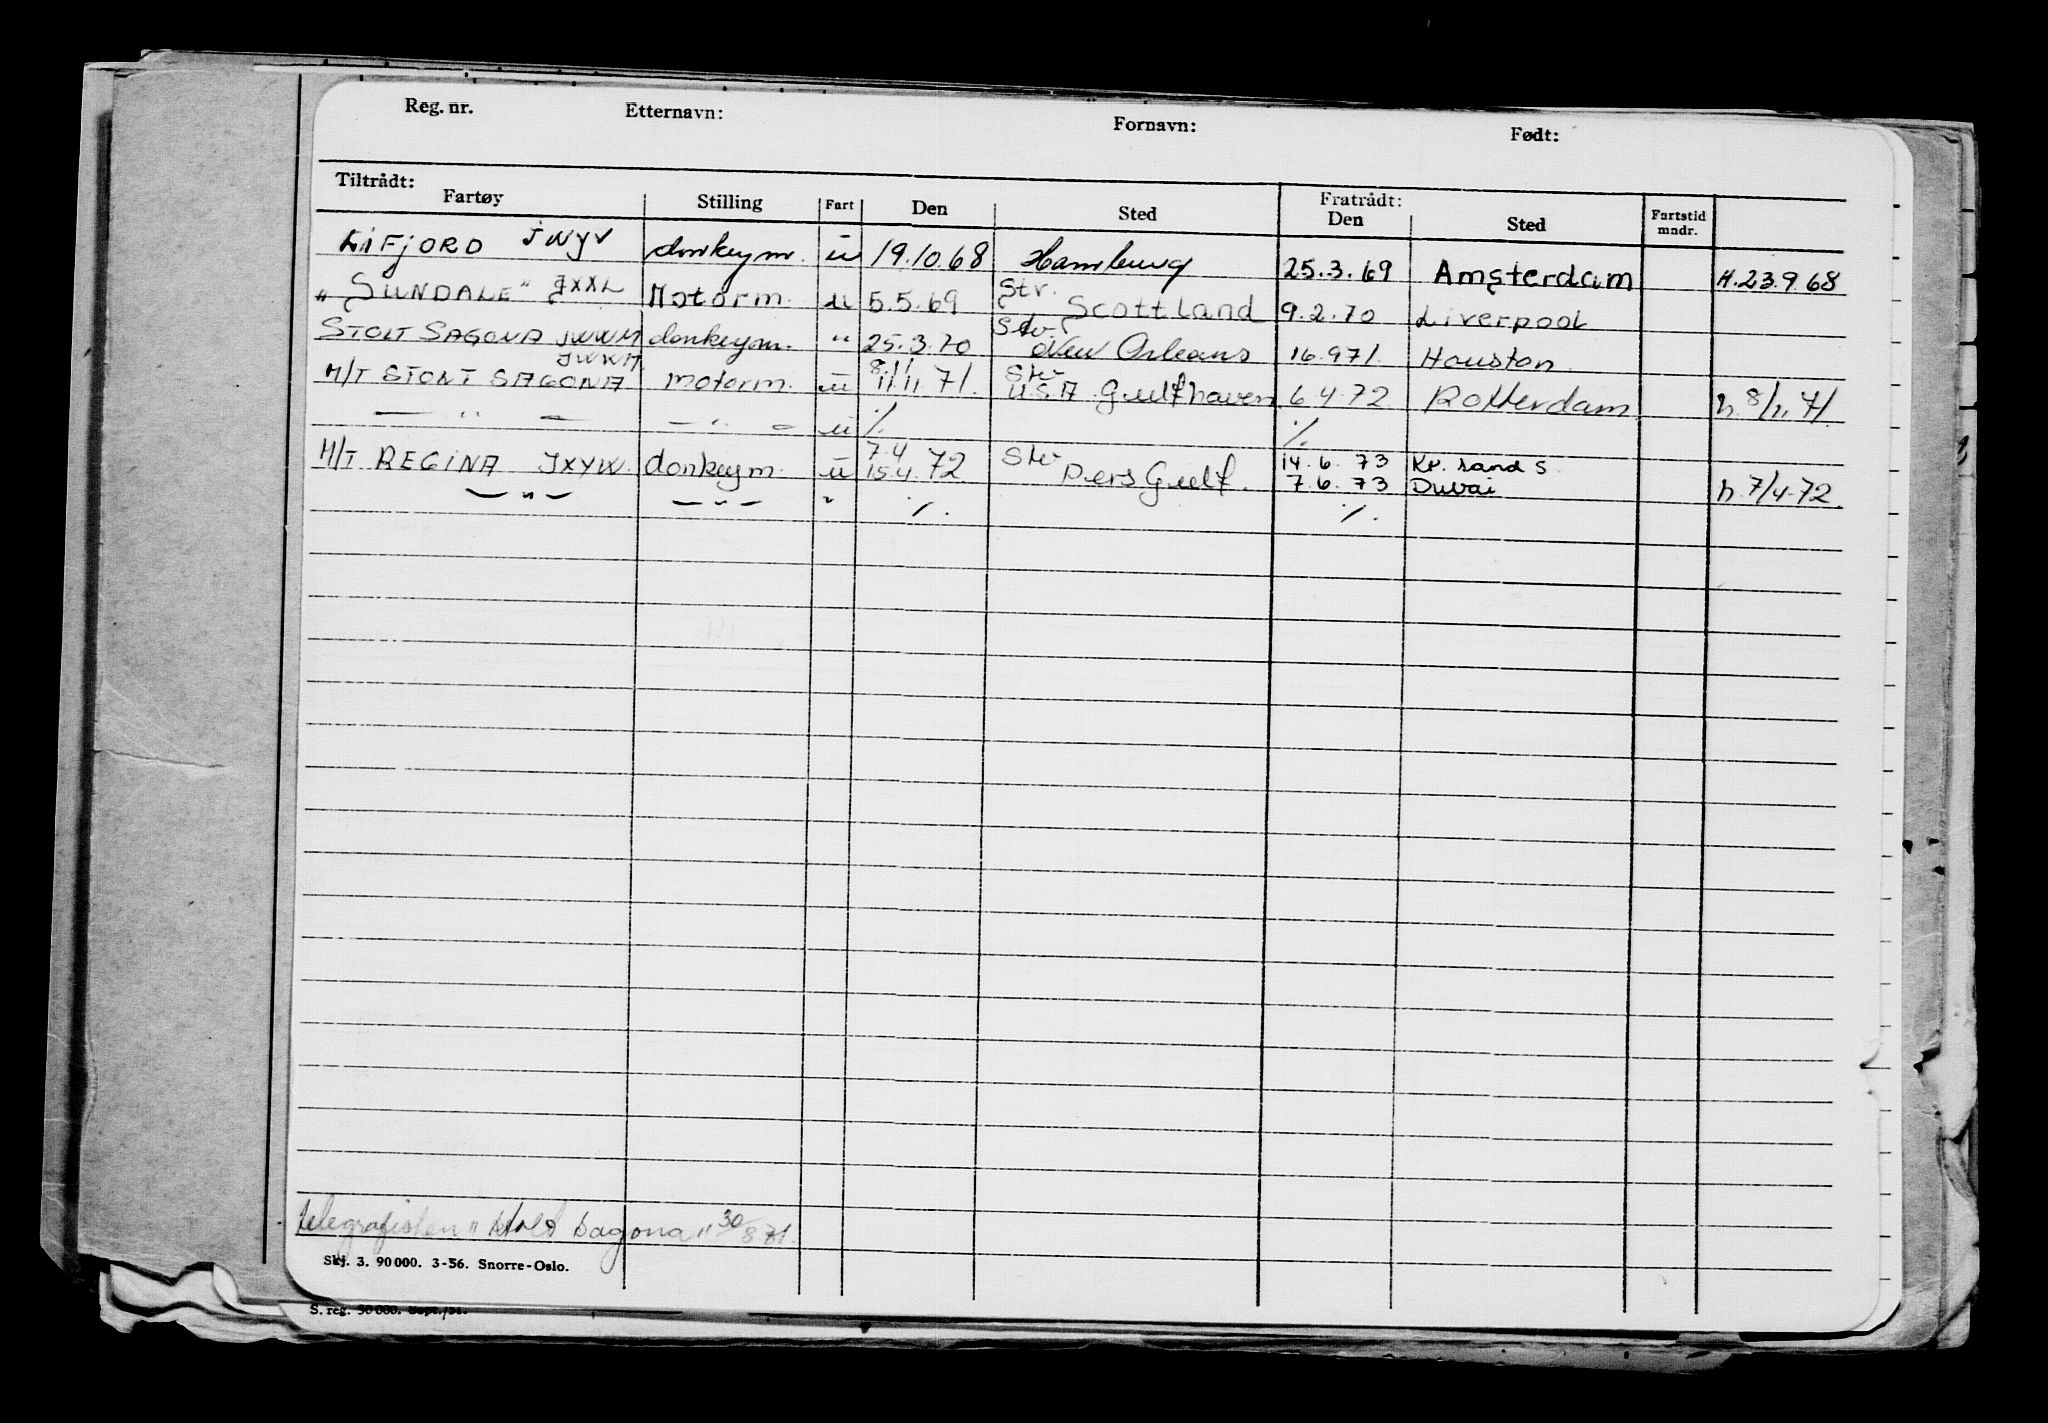 Reg. nr. Etternavn: Fornavn: Født:
Tiltrådt: Fratrådt:
Fartøy Stilling Fart Den Sted Den Sted Fartstid mndr.
LiFJORD JWYV donkeym. u 19.10.68 Hamburg 25.3.69 Amsterdam H.23.9.68
"SUNDALE" JXXL Motorm. u 5.5.69 Str. Scottland 9.2.70 Liverpool
STOLT SAGONA JWWM donkeym. " 25.3.70 Str. New Orleans 16.9.71. Houston
M/T STONT SAGONA JWWM motorm. u 8.11 11.11.71. Str U.S.A Gulfhaven 6.4.72 Rotterdam h. 8/11.71.
— " — — " — u ·/. ·/.
M/T REGINA JXYW. donkeym. u 7.4 15.4.72 Str Pers Gulf. 14.6.73 Kr. sand S.
7.6.73 Dubai h. 7/4-72.
— " — — " — " ·/. ·/.
telegrafisten "Stolt Sagona" 30/8 71.
Skj. 3. 90 000. 3-56. Snorre-Oslo.
S. reg. 50 000.